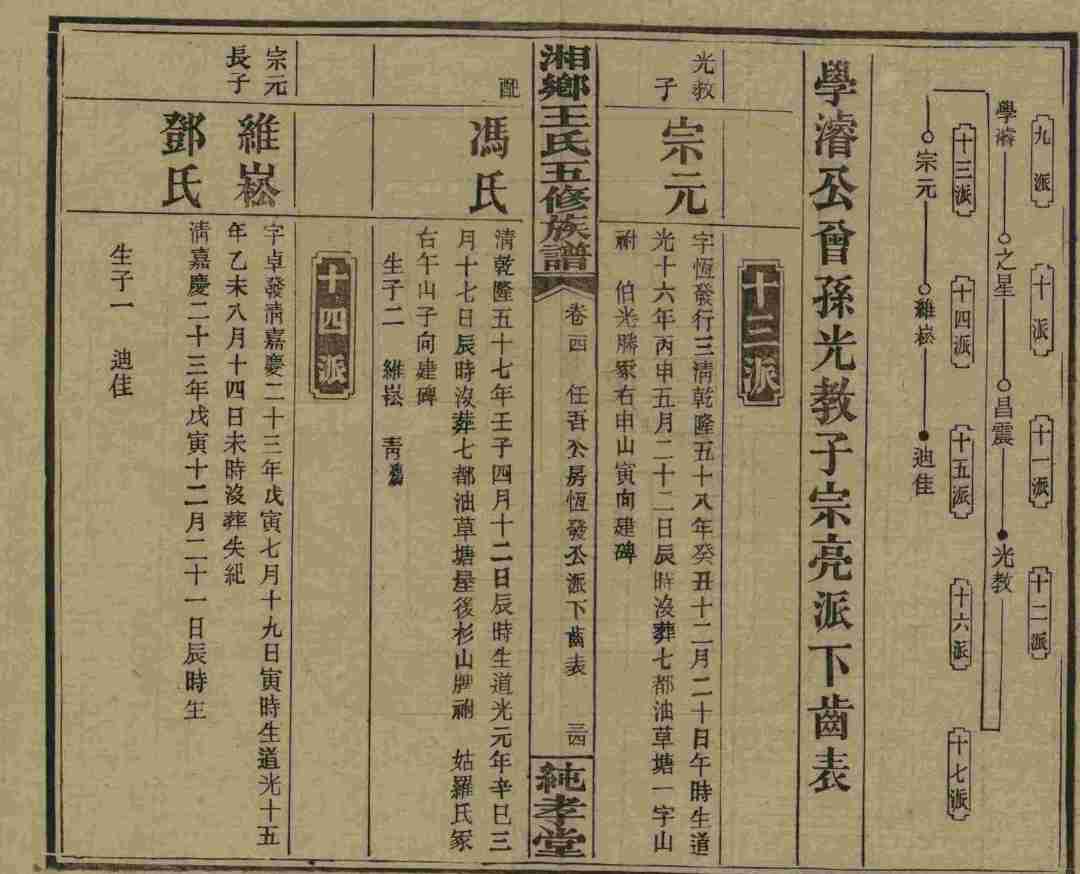 九派
十派
十一派
十二派
學濬
之星
昌震
光教
十三派
十四派
十五派
十六派
十七派
宗元
維崧
迪佳
學濬公曾孫光教子宗亮派下齒表
十三派
光教子
宗元
字恆發行三清乾隆五十八年癸丑十二月二十日午時生道
光十六年丙申五月二十二日辰時沒葬七都油草塘一字山
祔 伯光勝冢右申山寅向建碑
湘鄉王氏五修族譜
卷四 任吾公房恆發公派下齒表 三四
純孝堂
配
馮氏
清乾隆五十七年壬子四月十二日辰時生道光元年辛巳三
月十七日辰時沒葬七都油草塘屋後杉山牌祔 姑羅氏冢
右午山子向建碑
生子二 維崧 靑
十四派
宗元長子
維崧
字卓發清嘉慶二十三年戊寅七月十九日寅時生道光十五
年乙未八月十四日未時沒葬失紀
鄧氏
清嘉慶二十三年戊寅十二月二十一日辰時生
生子一 迪佳